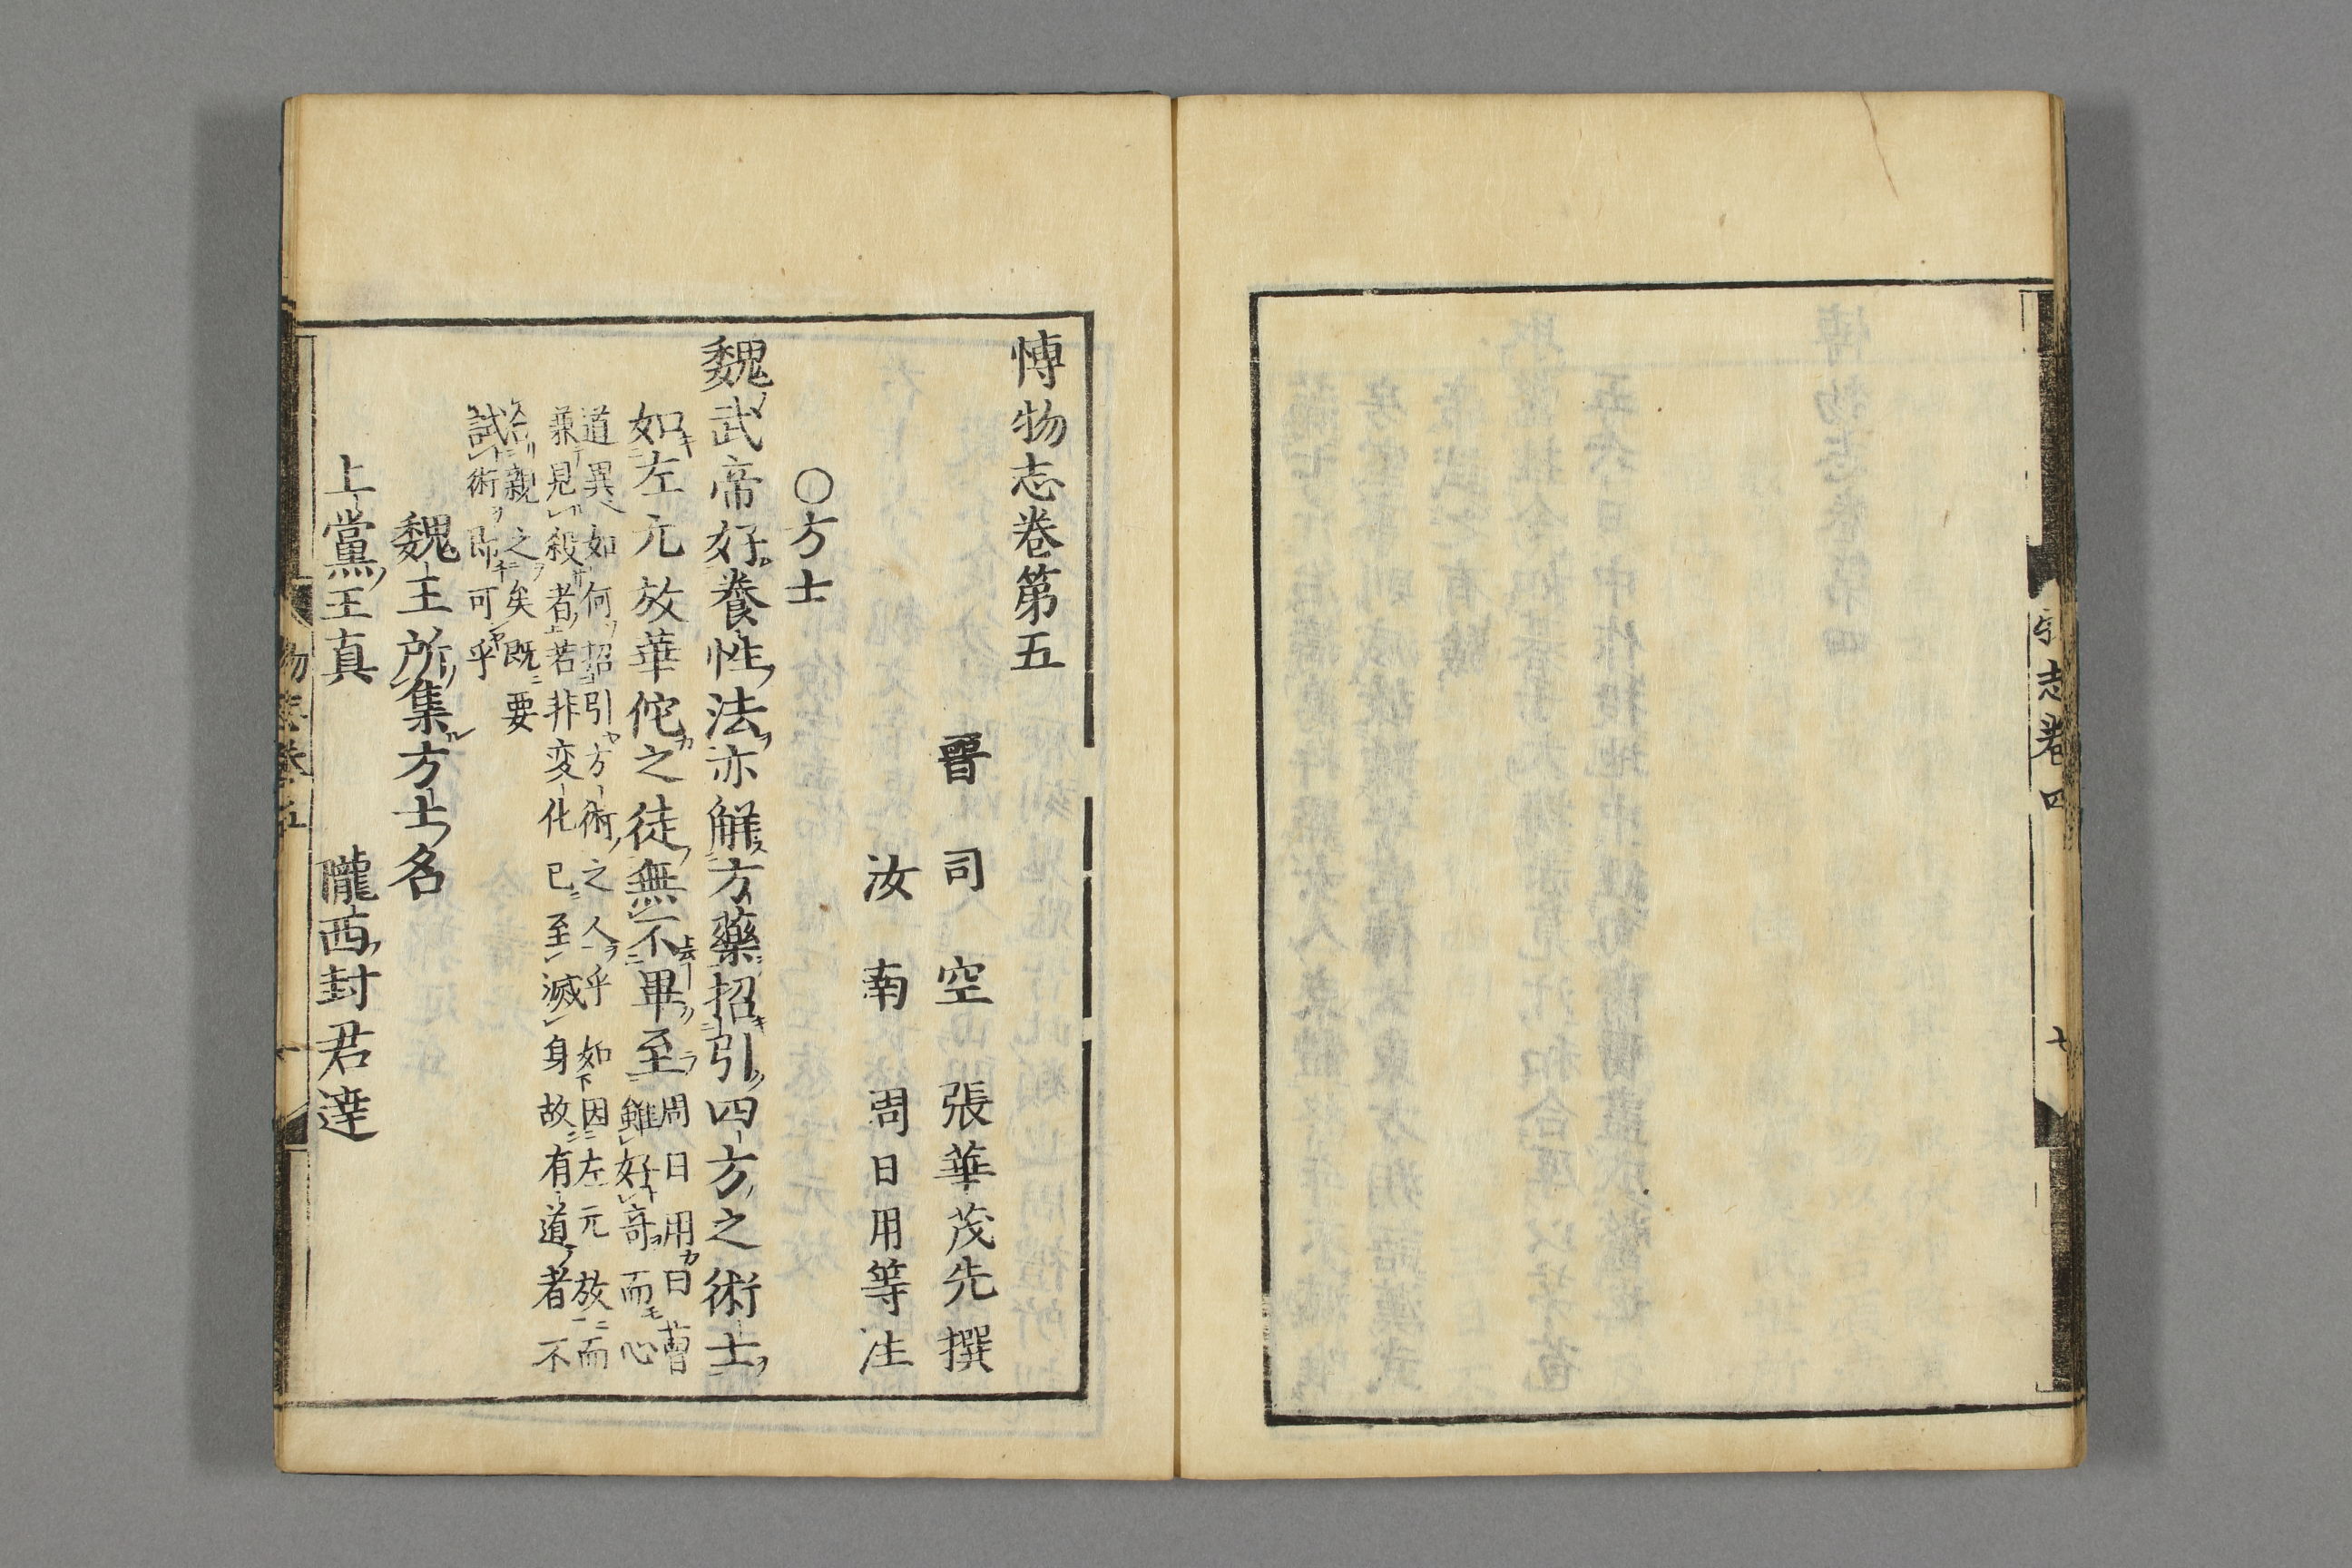 志卷四
七
博物志卷第五
晉司空張華茂先撰
汝南周日用等注
○方士
魏武帝好養性法亦解方藥招引四方之術士
如左元放華佗之徒無不畢至
周日用曰曹
雖好奇而心
道異如何招引方術之人乎如因左元放而
兼見殺者若非変化已至滅身故有道者不
洽親之矣既要
試術即可乎
魏王所集方士名
上黨王真 隴西封君達
物志卷五
一